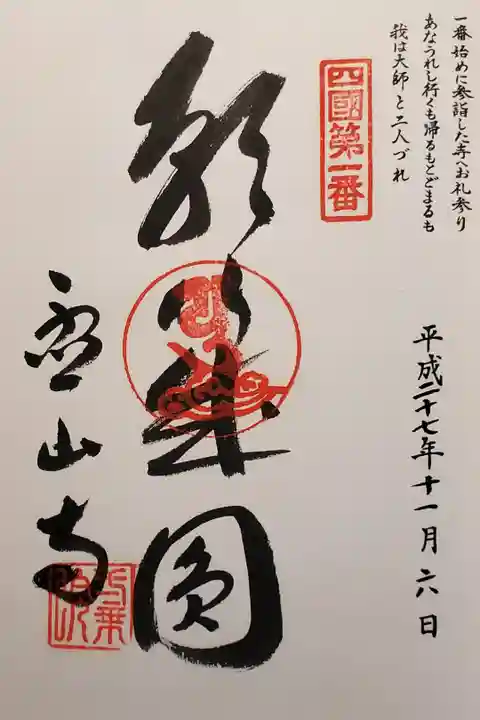 一番始めに参詣した寺へお礼参り
あなうれし行くも帰るもとどまるも
我は大師と二人づれ
四國第一番
平成二十七年十一月六日
願成圓
霊山寺